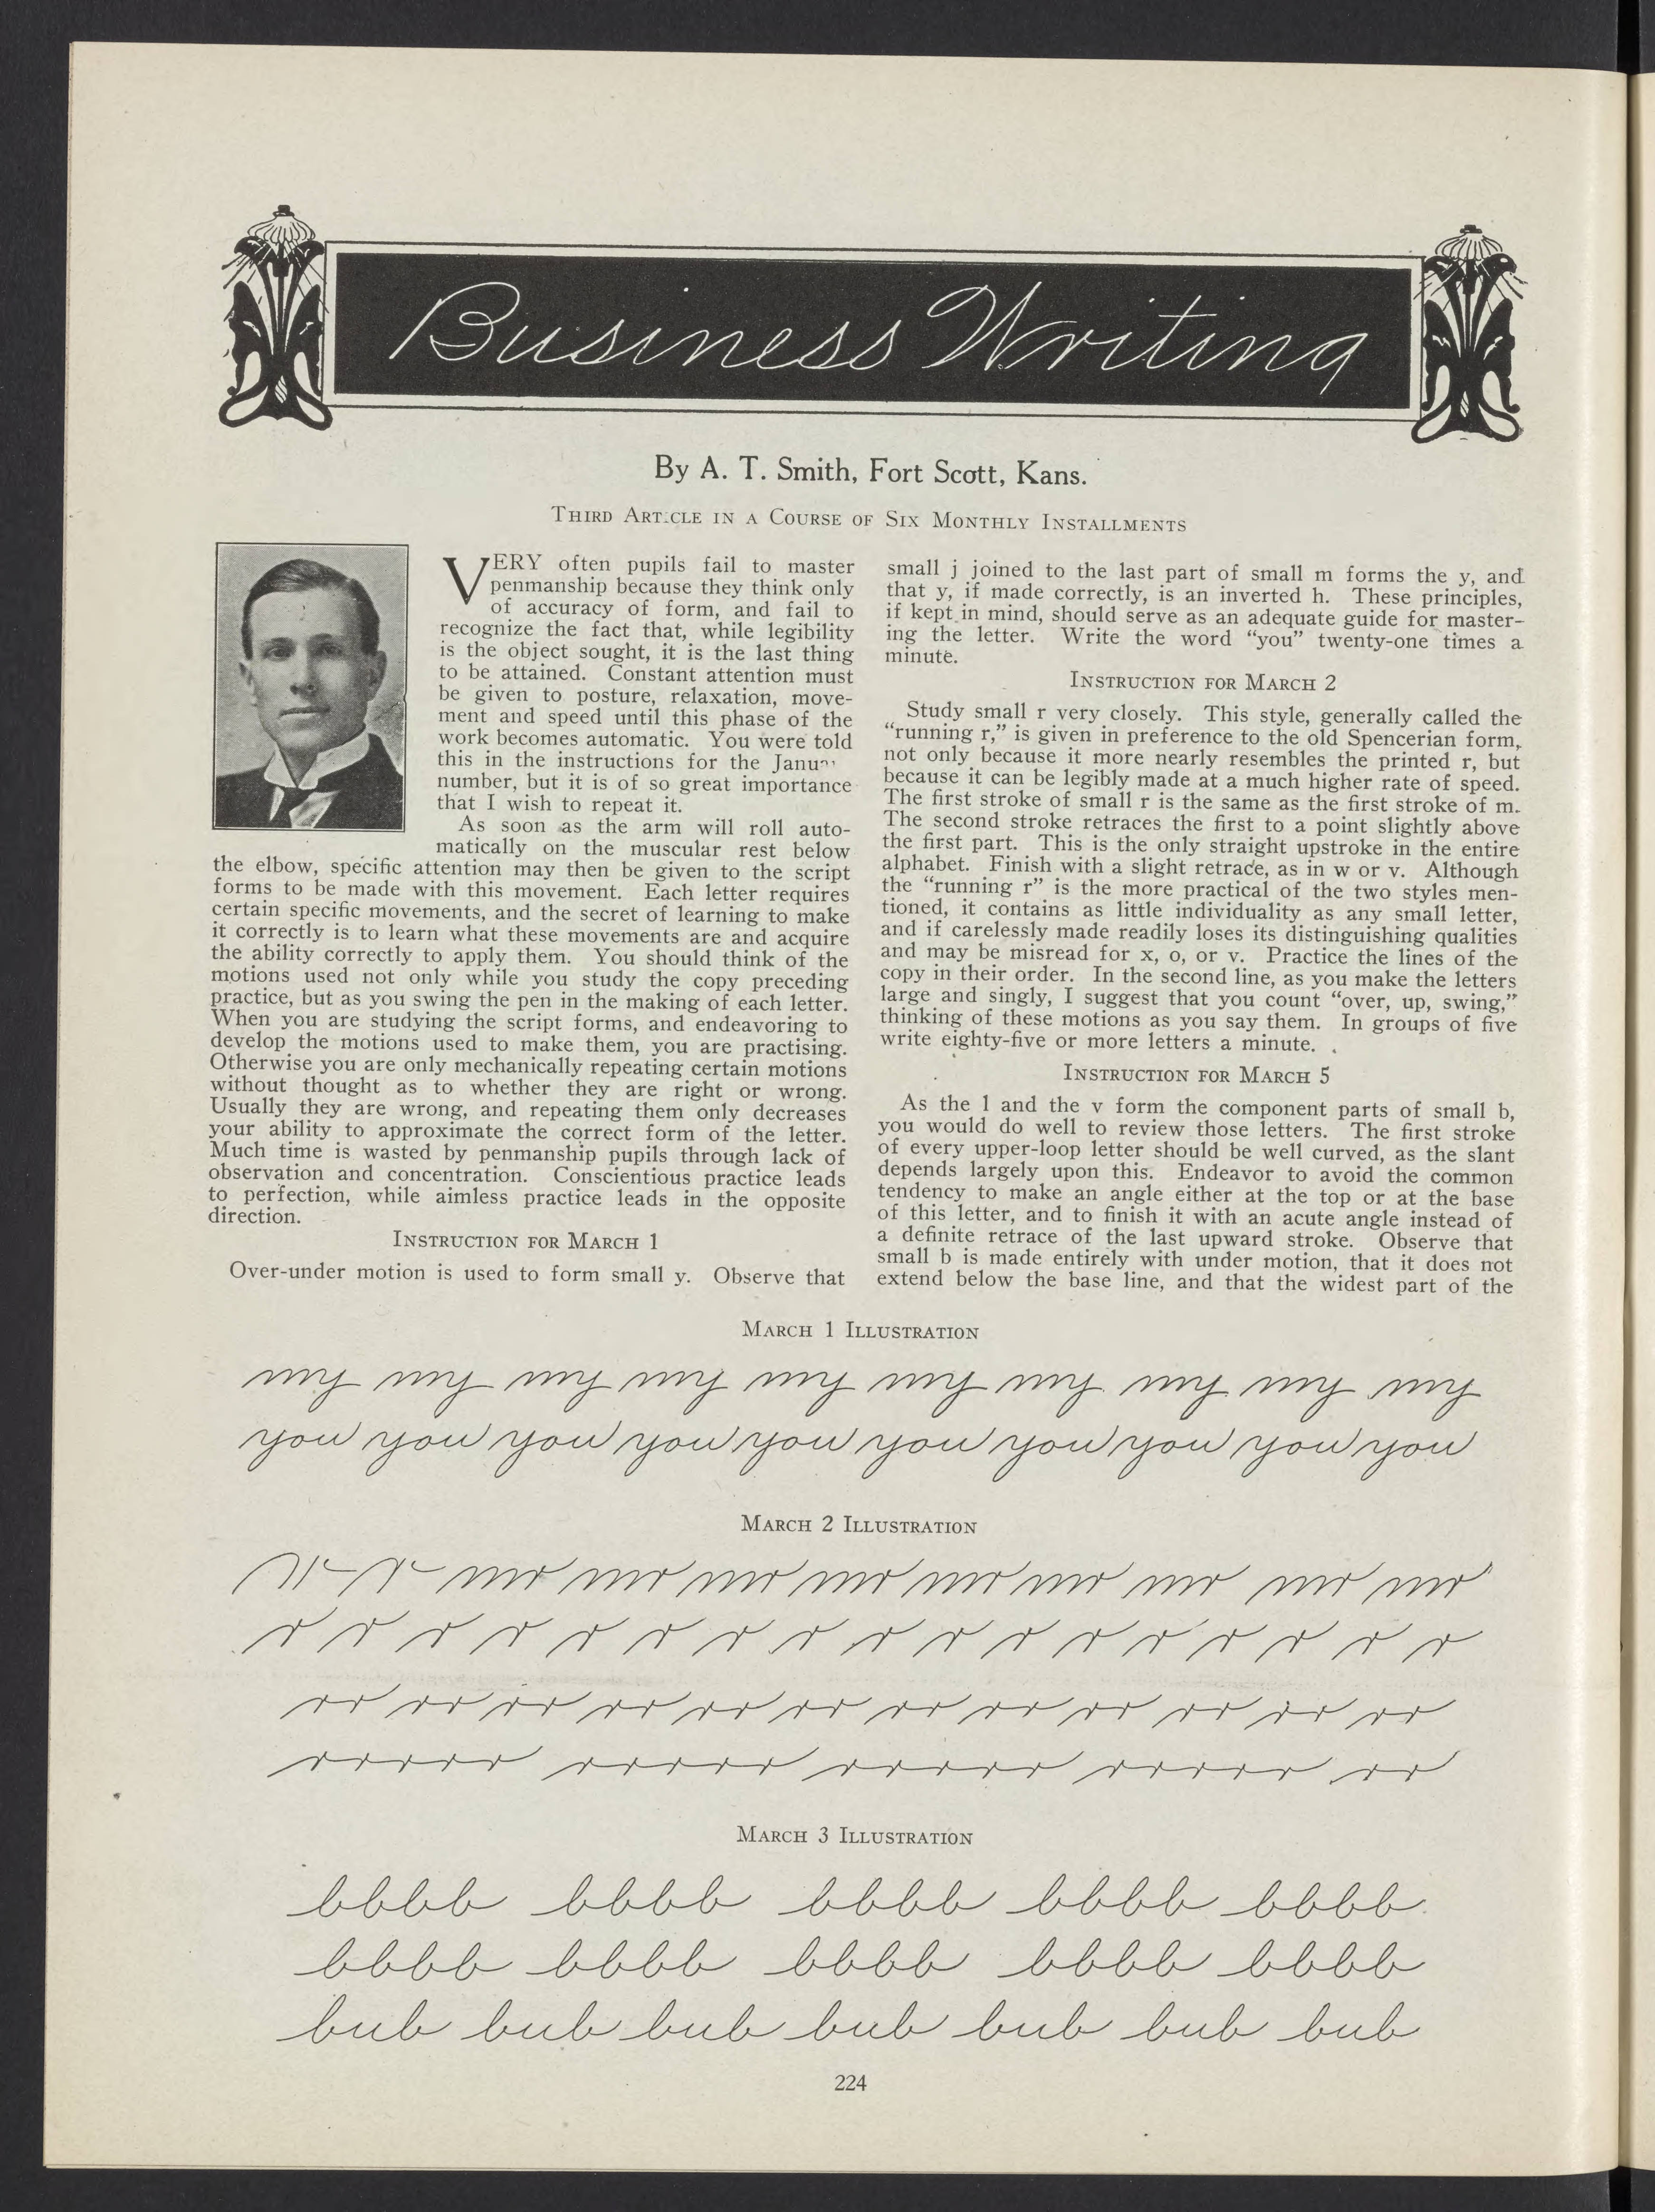 Business Writing
By A. T. Smith, Fort Scott, Kans.
THIRD ART.CLE IN A COURSE OF SIX MONTHLY INSTALLMENTS
VERY often pupils fail to master
penmanship because they think only
of accuracy of form, and fail to
recognize the fact that, while legibility
is the object sought, it is the last thing
to be attained. Constant attention must
be given to posture, relaxation, move-
ment and speed until this phase of the
work becomes automatic. You were told
this in the instructions for the
number, but it is of so great importance
that I wish to repeat it.
As soon as the arm will roll auto-
matically on the muscular rest below
the elbow, specific attention may then be given to the script
forms to be made with this movement. Each letter requires
certain specific movements, and the secret of learning to make
it correctly is to learn what these movements are and acquire
the ability correctly to apply them. You should think of the
motions used not only while you study the copy preceding
practice, but as you swing the pen in the making of each letter.
When you are studying the script forms, and endeavoring to
develop the motions used to make them, you are practising.
Otherwise you are only mechanically repeating certain motions
without thought as to whether they are right or wrong.
Usually they are wrong, and repeating them only decreases
your ability to approximate the correct form of the letter.
Much time is wasted by penmanship pupils through lack of
observation and concentration. Conscientious practice leads
to perfection, while aimless practice leads in the opposite
direction.
INSTRUCTION FOR MARCH 1
Over-under motion is used to form small y. Observe that
small j joined to the last part of small m forms the y, and
that y, if made correctly, is an inverted h. These principles,
if kept in mind, should serve as an adequate guide for master-
ing the letter. Write the word "you" twenty-one times a
minute.
INSTRUCTION FOR MARCH 2
Study small r very closely. This style, generally called the
"running r," is given in preference to the old Spencerian form,
not only because it more nearly resembles the printed r, but
because it can be legibly made at a much higher rate of speed.
The first stroke of small r is the same as the first stroke of m.
The second stroke retraces the first to a point slightly above
the first part. This is the only straight upstroke in the entire
alphabet. Finish with a slight retrace, as in w or v. Although
the "running r" is the more practical of the two styles men-
tioned, it contains as little individuality as any small letter,
and if carelessly made readily loses its distinguishing qualities
and may be misread for x, o, or v. Practice the lines of the
copy in their order. In the second line, as you make the letters
large and singly, I suggest that you count "over, up, swing,"
thinking of these motions as you say them. In groups of five
write eighty-five or more letters a minute.
INSTRUCTION FOR MARCH 5
As the l and the v form the component parts of small b,
you would do well to review those letters. The first stroke
of every upper-loop letter should be well curved, as the slant
depends largely upon this. Endeavor to avoid the common
tendency to make an angle either at the top or at the base
of this letter, and to finish it with an acute angle instead of
a definite retrace of the last upward stroke. Observe that
small b is made entirely with under motion, that it does not
extend below the base line, and that the widest part of the
MARCH 1 ILLUSTRATION
my my my my my my my my my my
you you you you you you you you you you
MARCH 2 ILLUSTRATION
r mr mr mr mr mr mr mr mr mr
r r r r r r r r r r r r r r r r r
rr rr rr rr rr rr rr rr rr rr rr rr
rrrrr rrrrr rrrrr rrrrr rr
MARCH 3 ILLUSTRATION
bbbb bbbb bbbb bbbb bbbb
bbbb bbbb bbbb bbbb bbbb
bub bub bub bub bub bub bub
224